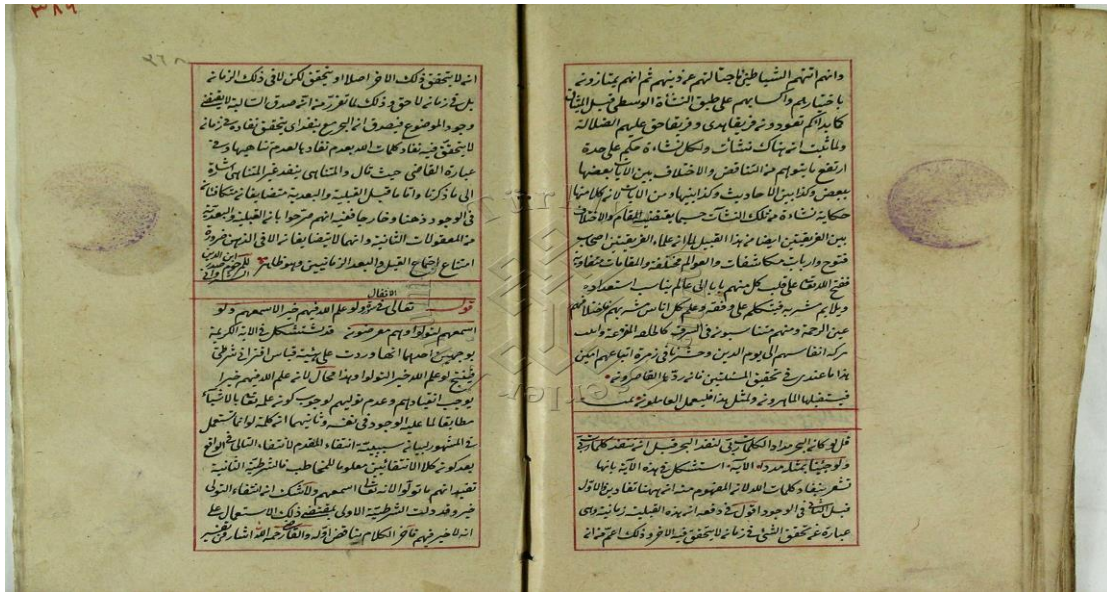 وانهم اتتهم الشياطين فاجتالتهم عن دينهم ثم انهم يمتازون
باختيارهم واكسابهم على طبق النشأة الوسطى قبل
كما بدأكم تعودون فريقا هدى وفريقا حق عليهم الضلالة
ولما ثبت ان هناك نشئات ولكل نشاءة حكم على حدة
ارتفع ما يتوهم من التناقض والاختلاف بين الايات بعضها
ببعض وكذا بين الاحاديث وكذا بينها وبين الايات لان كلا منها
حكاية نشاءة من تلك النشآت حسبما يقتضيه المقام والاختلاف
بين الفريقين ايضا من هذا القبيل فان علماء الفريقين اصحاب
فتوح وارباب مكاشفات والعوالم مختلفة والمقامات متفاوتة
ففتح الله تعالى على قلب كل منهم بابا الى عالم يناسب استعداده
ويلايم مشربه فيتكلم على وفقه وعلم كل اناس مشربهم
عين الرحمة ومنهم متناسبون في السرقة كالحلقة المفرغة
بركة انفاسهم الى يوم الدين وحشرنا في زمرة اتباعهم امين
هذا ما عندي في تحقيق المسئلتين فان رده القاصرون
فسيقبلها الماهرون ولمثل هذا فليعمل العاملون
قل لو كان البحر مدادا لكلمات ربي لنفد البحر قبل ان تنفد كلمات ربي
ولو جئنا بمثله مددا الآية استشكل في هذه الآية بانها
تشعر بنفاد كلمات الله لان المفهوم منه ان ههنا نفادين الاول
قبل الثاني في الوجود اقول في دفعه ان هذه القبلية زمانية وهي
عبارة عن تحقق الشئ في زمان لا يتحقق فيه الآخر وذلك اعم من انه
٣٨٩
٣٦٨
انه لا يتحقق ذلك الآخر اصلا او يتحقق لكن لا في ذلك الزمان
بل في زمان لاحق وذلك لما تقرر من ان صدق السالبة لا يقتضي
وجود الموضوع فيصدق ان البحر مع ينفد اي يتحقق نفاده في زمان
لا يتحقق فيه نفاد كلمات الله بعدم نفادها لعدم تناهيها وفي
عبارة القاضي حيث قال والمتناهي ينفد غير المتناهي اشارة
الى ما ذكرنا واما ما قيل القبلية والبعدية متضايفان متكافئان
في الوجود ذهنا وخارجا ففيه انهم صرحوا بان القبلية والبعدية
من المعقولات الثانية وانهما لا يتضايفان الا في الذهن ضرورة
امتناع اجتماع القبل والبعد الزمانيين وهو ظاهر
الانفال
قوله تعالى في ولو علم الله فيهم خيرا لاسمعهم ولو
اسمعهم لتولوا وهم معرضون قد يستشكل في الآية الكريمة
بوجهين احدهما انها وردت على هيئة قياس اقتراني شرطي
فينتج لو علم الله خيرا لتولوا وهذا محال لان علم الله فيهم خيرا
يوجب انقيادهم وعدم توليهم لوجوب كون علمه تعالى بالاشياء
مطابقا لما عليه الوجود في نفسه وثانيهما ان كلمة لو انما تستعمل
في المشهور لبيان سببية انتفاء المقدم لانتفاء التالي في الواقع
بعد كون كلا الانتفائين معلوما للمخاطب فالشرطية الثانية
تفيد انهم ما تولوا لانه تعالى ما اسمعهم ولا شك ان انتفاء التولي
خير وقد دلت الشرطية الاولى بمقتضى ذلك الاستعمال على
انه لا خير فيهم فآخر الكلام يناقض اوله والقاضي رحمه الله اشار في تفسير